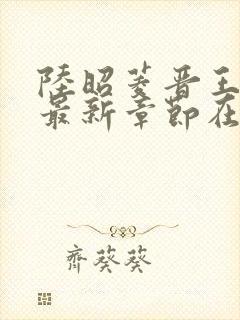 陸昭菱晋王
最新章節在
齊葵葵